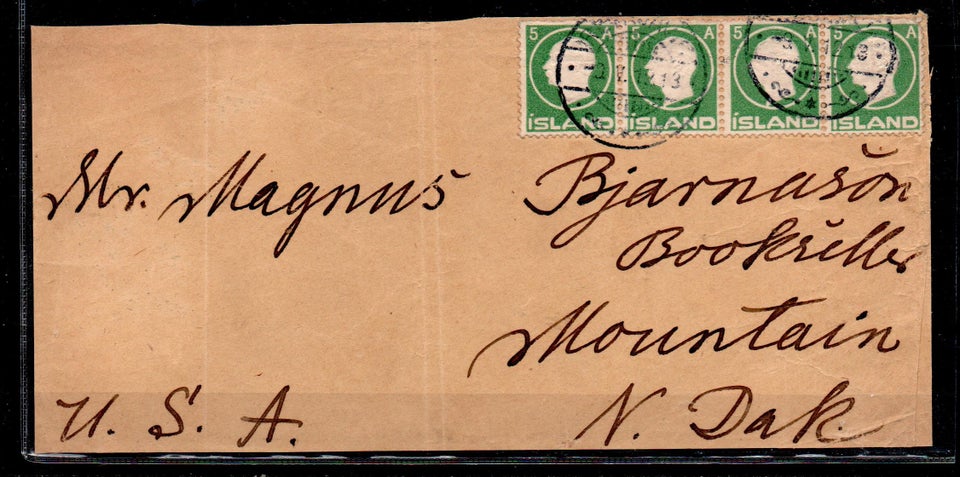 5 A 5 A 5 A 5 A
ÍSLAND ÍSLAND ÍSLAND ÍSLAND
Mr. Magnus Bjarnason
Bookseller
Mountain
U. S. A. N. Dak.